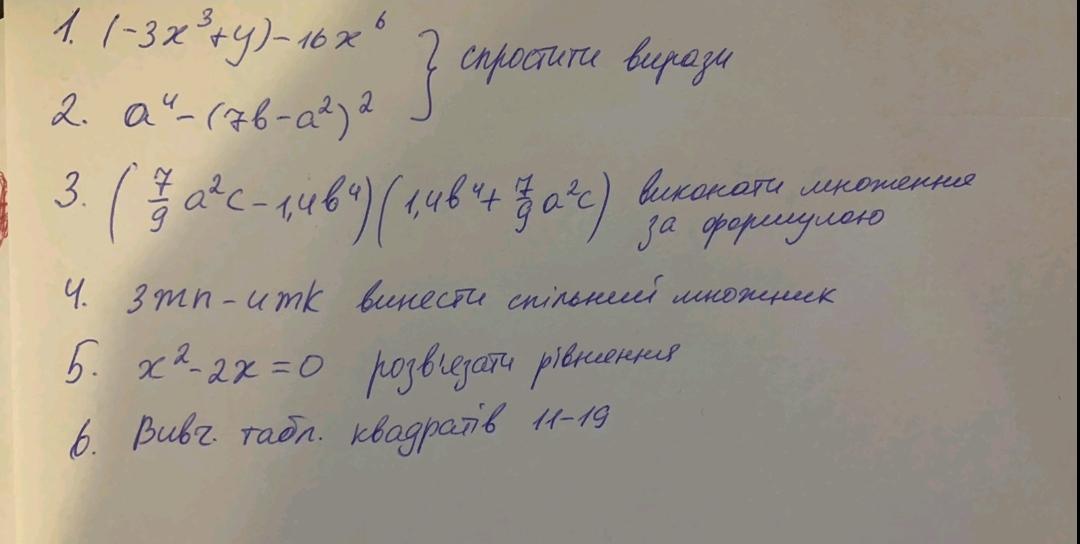 1. (-3x³+y)-16x⁶ } спростити вирази
2. a⁴-(7b-a²)²
3. (7/9 a²c-1,4b⁴)(1,4b⁴+7/9 a²c) виконати множення
за формулою
4. 3mn-4mk винести спільний множник
5. x²-2x=0 розв'язати рівняння
6. Вивч. табл. квадратів 11-19